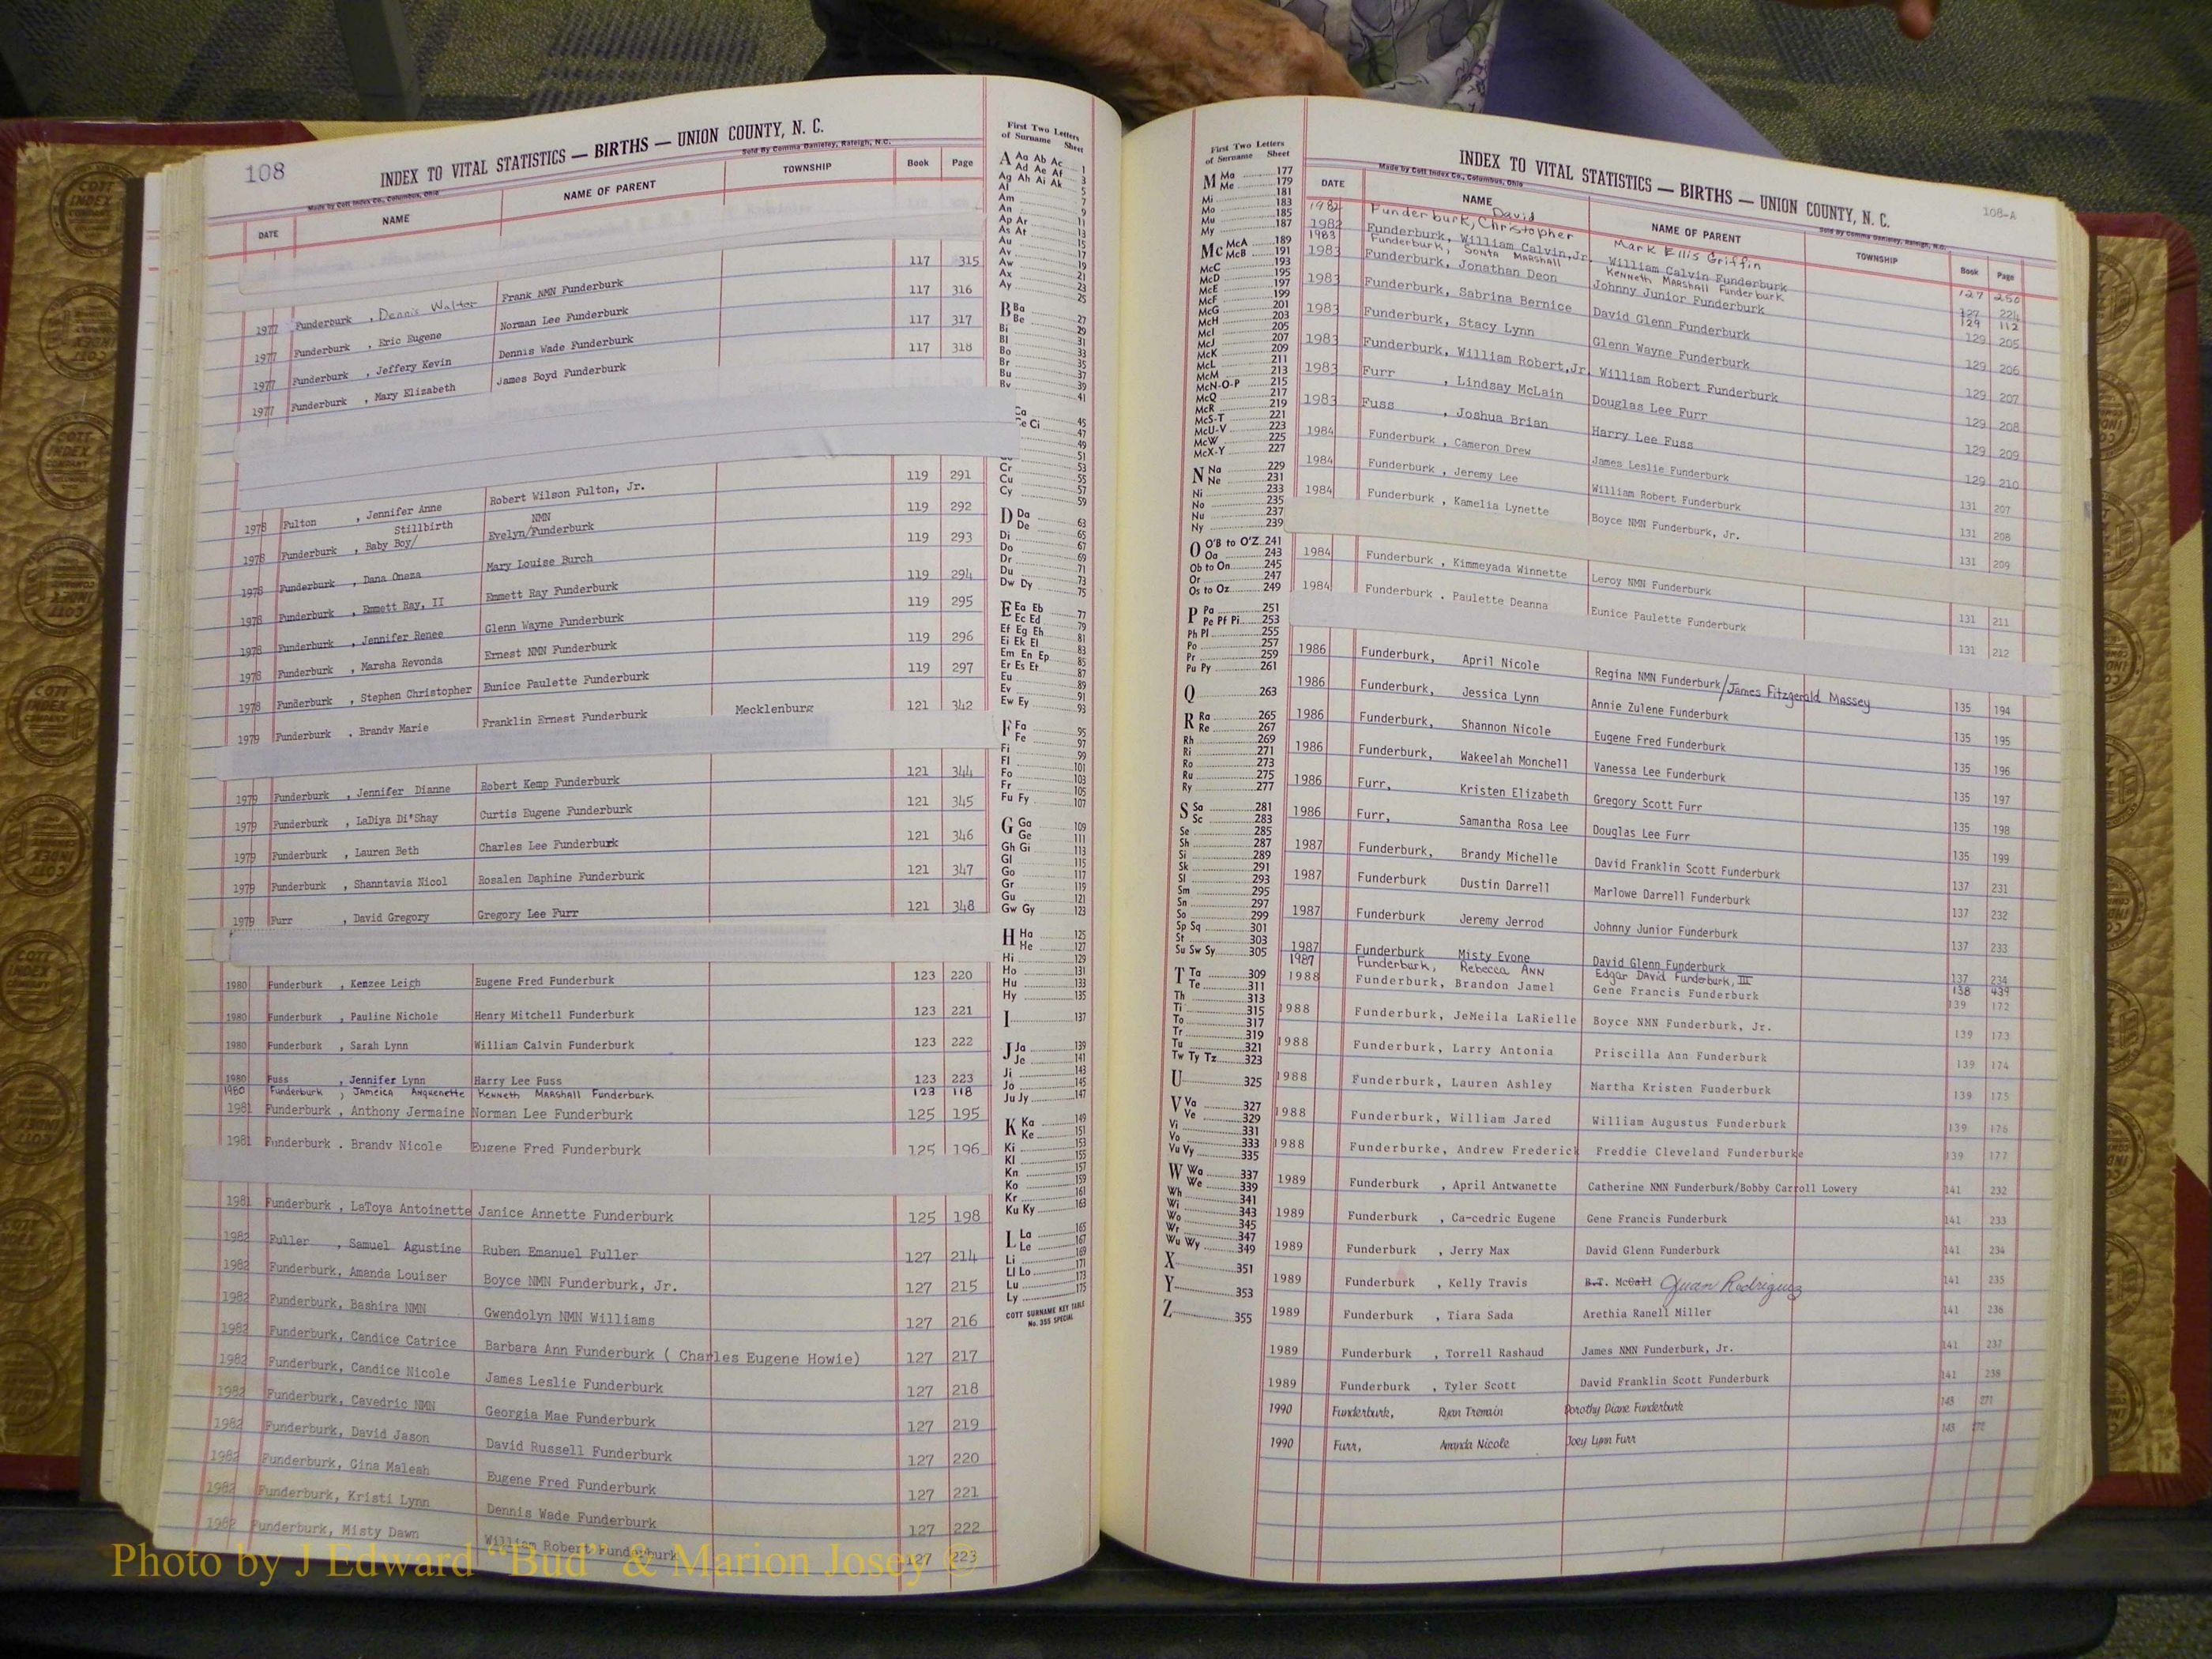 108
INDEX TO VITAL STATISTICS — BIRTHS — UNION COUNTY, N. C.
Made by Cott Index Co., Columbus, Ohio
Sold By Comma Danieley, Raleigh, N.C.
DATE NAME NAME OF PARENT TOWNSHIP Book Page
1977 Funderburk , Dennis Walter Frank NMN Funderburk 117 315
1977 Funderburk , Eric Eugene Norman Lee Funderburk 117 316
1977 Funderburk , Jeffery Kevin Dennis Wade Funderburk 117 317
1977 Funderburk , Mary Elizabeth James Boyd Funderburk 117 318
1978 Fulton , Jennifer Anne Robert Wilson Fulton, Jr. 119 291
Stillbirth NMN
1978 Funderburk , Baby Boy/ Evelyn/Funderburk 119 292
1978 Funderburk , Dana Oneza Mary Louise Burch 119 293
1978 Funderburk , Emmett Ray, II Emmett Ray Funderburk 119 294
1978 Funderburk , Jennifer Renee Glenn Wayne Funderburk 119 295
1978 Funderburk , Marsha Revonda Ernest NMN Funderburk 119 296
1978 Funderburk , Stephen Christopher Eunice Paulette Funderburk 119 297
1979 Funderburk , Brandy Marie Franklin Ernest Funderburk Mecklenburg 121 342
1979 Funderburk , Jennifer Dianne Robert Kemp Funderburk 121 344
1979 Funderburk , LaDiya Di'Shay Curtis Eugene Funderburk 121 345
1979 Funderburk , Lauren Beth Charles Lee Funderburk 121 346
1979 Funderburk , Shanntavia Nicol Rosalen Daphine Funderburk 121 347
1979 Furr , David Gregory Gregory Lee Furr 121 348
1980 Funderburk , Kenzee Leigh Eugene Fred Funderburk 123 220
1980 Funderburk , Pauline Nichole Henry Mitchell Funderburk 123 221
1980 Funderburk , Sarah Lynn William Calvin Funderburk 123 222
1980 Fuss , Jennifer Lynn Harry Lee Fuss 123 223
1980 Funderburk , Jameica Anquenette Kenneth Marshall Funderburk 123 118
1981 Funderburk , Anthony Jermaine Norman Lee Funderburk 125 195
1981 Funderburk . Brandy Nicole Eugene Fred Funderburk 125 196
1981 Funderburk , LaToya Antoinette Janice Annette Funderburk 125 198
1982 Fuller , Samuel Agustine Ruben Emanuel Fuller 127 214
1982 Funderburk, Amanda Louiser Boyce NMN Funderburk, Jr. 127 215
1982 Funderburk, Bashira NMN Gwendolyn NMN Williams 127 216
1982 Funderburk, Candice Catrice Barbara Ann Funderburk ( Charles Eugene Howie) 127 217
1982 Funderburk, Candice Nicole James Leslie Funderburk 127 218
1982 Funderburk, Cavedric NMN Georgia Mae Funderburk 127 219
1982 Funderburk, David Jason David Russell Funderburk 127 220
1982 Funderburk, Gina Maleah Eugene Fred Funderburk 127 221
1982 Funderburk, Kristi Lynn Dennis Wade Funderburk 127 222
1982 Funderburk, Misty Dawn William Robert Funderburk 127 223
First Two Letters
of Surname Sheet
A Aa Ab Ac 1
Ad Ae Af 3
Ag Ah Ai Ak 5
Al 7
Am 9
An 11
Ap Ar 13
As At 15
Au 17
Av 19
Aw 21
Ax 23
Ay 25
B Ba 27
Be 29
Bi 31
Bl 33
Bo 35
Br 37
Bu 39
By 41
Ca
Ce Ci 45
47
49
51
Cr 53
Cu 55
Cy 57
59
D Da 63
De 65
Di 67
Do 69
Dr 71
Du 73
Dw Dy 75
E Ea Eb 77
Ec Ed 79
Ef Eg Eh 81
Ei Ek El 83
Em En Ep 85
Er Es Et 87
Eu 89
Ev 91
Ew Ey 93
F Fa 95
Fe 97
Fi 99
Fl 101
Fo 103
Fr 105
Fu Fy 107
G Ga 109
Ge 111
Gh Gi 113
Gl 115
Go 117
Gr 119
Gu 121
Gw Gy 123
H Ha 125
He 127
Hi 129
Ho 131
Hu 133
Hy 135
I 137
J Ja 139
Je 141
Ji 143
Jo 145
Ju Jy 147
K Ka 149
Ke 151
Ki 153
Kl 155
Kn 157
Ko 159
Kr 161
Ku Ky 163
L La 165
Le 167
Li 169
Ll Lo 171
Lu 173
Ly 175
COTT SURNAME KEY TABLE
No. 355 SPECIAL
First Two Letters
of Surname Sheet
M Ma 177
Me 179
Mi 181
Mo 183
Mu 185
My 187
Mc McA 189
McB 191
McC 193
McD 195
McE 197
McF 199
McG 201
McH 203
McI 205
McJ 207
McK 209
McL 211
McM 213
McN-O-P 215
McQ 217
McR 219
McS-T 221
McU-V 223
McW 225
McX-Y 227
N Na 229
Ne 231
Ni 233
No 235
Nu 237
Ny 239
O O'B to O'Z 241
Oa 243
Ob to On 245
Or 247
Os to Oz 249
P Pa 251
Pe Pf Pi 253
Ph Pl 255
Po 257
Pr 259
Pu Py 261
Q 263
R Ra 265
Re 267
Rh 269
Ri 271
Ro 273
Ru 275
Ry 277
S Sa 281
Sc 283
Se 285
Sh 287
Si 289
Sk 291
Sl 293
Sm 295
Sn 297
So 299
Sp Sq 301
St 303
Su Sw Sy 305
T Ta 309
Te 311
Th 313
Ti 315
To 317
Tr 319
Tu 321
Tw Ty Tz 323
U 325
V Va 327
Ve 329
Vi 331
Vo 333
Vu Vy 335
W Wa 337
We 339
Wh 341
Wi 343
Wo 345
Wr 347
Wu Wy 349
X 351
Y 353
Z 355
INDEX TO VITAL STATISTICS — BIRTHS — UNION COUNTY, N. C.
108-A
Made by Cott Index Co., Columbus, Ohio
Sold By Comma Danieley, Raleigh, N.C.
DATE NAME NAME OF PARENT TOWNSHIP Book Page
David
1982 Funderburk, Christopher Mark Ellis Griffin 127 250
1982 Funderburk, William Calvin, Jr. William Calvin Funderburk 127 224
1983 Funderburk, Sonta Marshall Kenneth Marshall Funderburk 129 112
1983 Funderburk, Jonathan Deon Johnny Junior Funderburk 129 205
1983 Funderburk, Sabrina Bernice David Glenn Funderburk 129 206
1983 Funderburk, Stacy Lynn Glenn Wayne Funderburk 129 207
1983 Funderburk, William Robert,Jr. William Robert Funderburk 129 208
1983 Furr , Lindsay McLain Douglas Lee Furr 129 209
1983 Fuss , Joshua Brian Harry Lee Fuss 129 210
1984 Funderburk , Cameron Drew James Leslie Funderburk 131 207
1984 Funderburk , Jeremy Lee William Robert Funderburk 131 208
1984 Funderburk , Kamelia Lynette Boyce NMN Funderburk, Jr. 131 209
1984 Funderburk , Kimmeyada Winnette Leroy NMN Funderburk 131 211
1984 Funderburk . Paulette Deanna Eunice Paulette Funderburk 131 212
1986 Funderburk, April Nicole Regina NMN Funderburk/James Fitzgerald Massey 135 194
1986 Funderburk, Jessica Lynn Annie Zulene Funderburk 135 195
1986 Funderburk, Shannon Nicole Eugene Fred Funderburk 135 196
1986 Funderburk, Wakeelah Monchell Vanessa Lee Funderburk 135 197
1986 Furr, Kristen Elizabeth Gregory Scott Furr 135 198
1986 Furr, Samantha Rosa Lee Douglas Lee Furr 135 199
1987 Funderburk, Brandy Michelle David Franklin Scott Funderburk 137 231
1987 Funderburk Dustin Darrell Marlowe Darrell Funderburk 137 232
1987 Funderburk Jeremy Jerrod Johnny Junior Funderburk 137 233
1987 Funderburk Misty Evone David Glenn Funderburk 137 234
1987 Funderburk, Rebecca Ann Edgar David Funderburk, III 138 439
1988 Funderburk, Brandon Jamel Gene Francis Funderburk 139 172
1988 Funderburk, JeMeila LaRielle Boyce NMN Funderburk, Jr. 139 173
1988 Funderburk, Larry Antonia Priscilla Ann Funderburk 139 174
1988 Funderburk, Lauren Ashley Martha Kristen Funderburk 139 175
1988 Funderburk, William Jared William Augustus Funderburk 139 176
1988 Funderburke, Andrew Frederick Freddie Cleveland Funderburke 139 177
1989 Funderburk , April Antwanette Catherine NMN Funderburk/Bobby Carroll Lowery 141 232
1989 Funderburk , Ca-cedric Eugene Gene Francis Funderburk 141 233
1989 Funderburk , Jerry Max David Glenn Funderburk 141 234
1989 Funderburk , Kelly Travis B.T. McCall Juan Rodriguez 141 235
1989 Funderburk , Tiara Sada Arethia Ranell Miller 141 236
1989 Funderburk , Torrell Rashaud James NMN Funderburk, Jr. 141 237
1989 Funderburk , Tyler Scott David Franklin Scott Funderburk 141 238
1990 Funderburk, Ryan Tremain Dorothy Diane Funderburk 143 271
1990 Furr, Amanda Nicole Joey Lynn Furr 143 272
Photo by J Edward “Bud” & Marion Josey ©